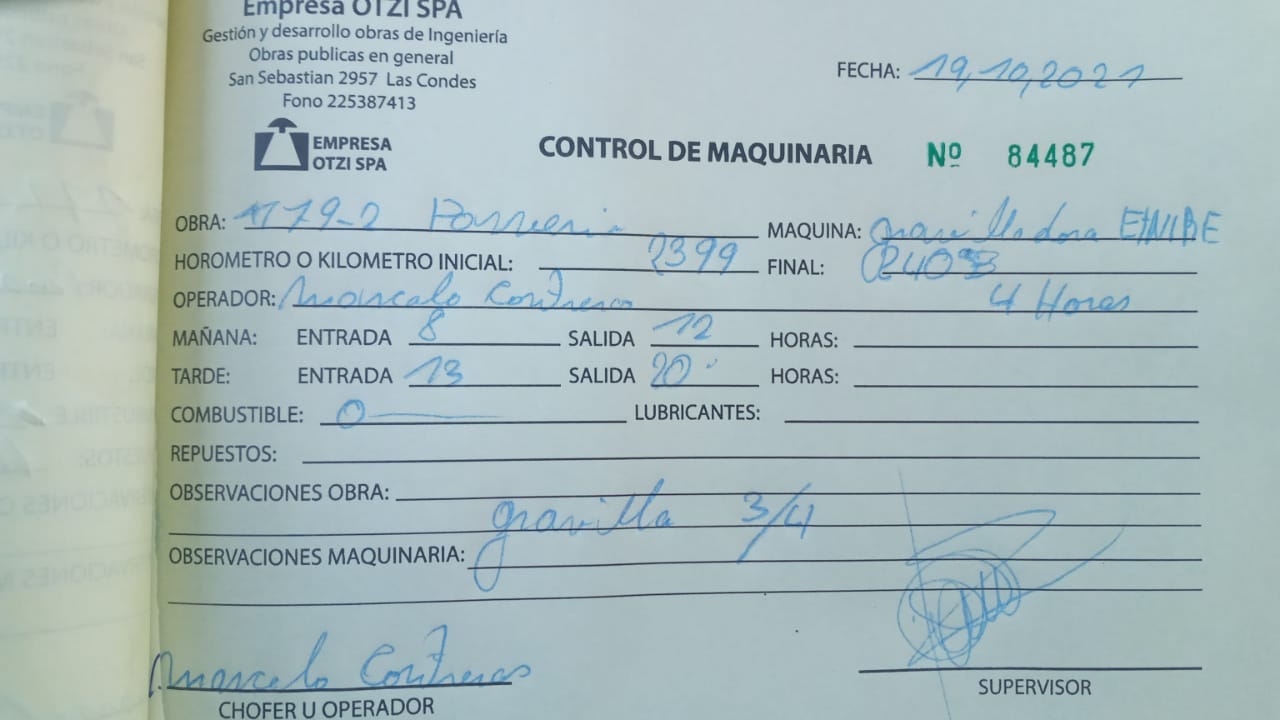 Empresa OTZI SPA
Gestión y desarrollo obras de Ingeniería
Obras publicas en general
San Sebastian 2957 Las Condes
Fono 225387413
FECHA: 19,10,2021
EMPRESA
OTZI SPA
CONTROL DE MAQUINARIA Nº 84487
OBRA: 1179-2 MAQUINA: gravilladora
HOROMETRO O KILOMETRO INICIAL: 2399 FINAL: 2403
OPERADOR: Marcelo Contreras 4 Horas
MAÑANA: ENTRADA 8 SALIDA 12 HORAS:
TARDE: ENTRADA 13 SALIDA 20 HORAS:
COMBUSTIBLE: 0 LUBRICANTES:
REPUESTOS:
OBSERVACIONES OBRA:
gravilla 3/4
OBSERVACIONES MAQUINARIA:
Marcelo Contreras
CHOFER U OPERADOR
SUPERVISOR